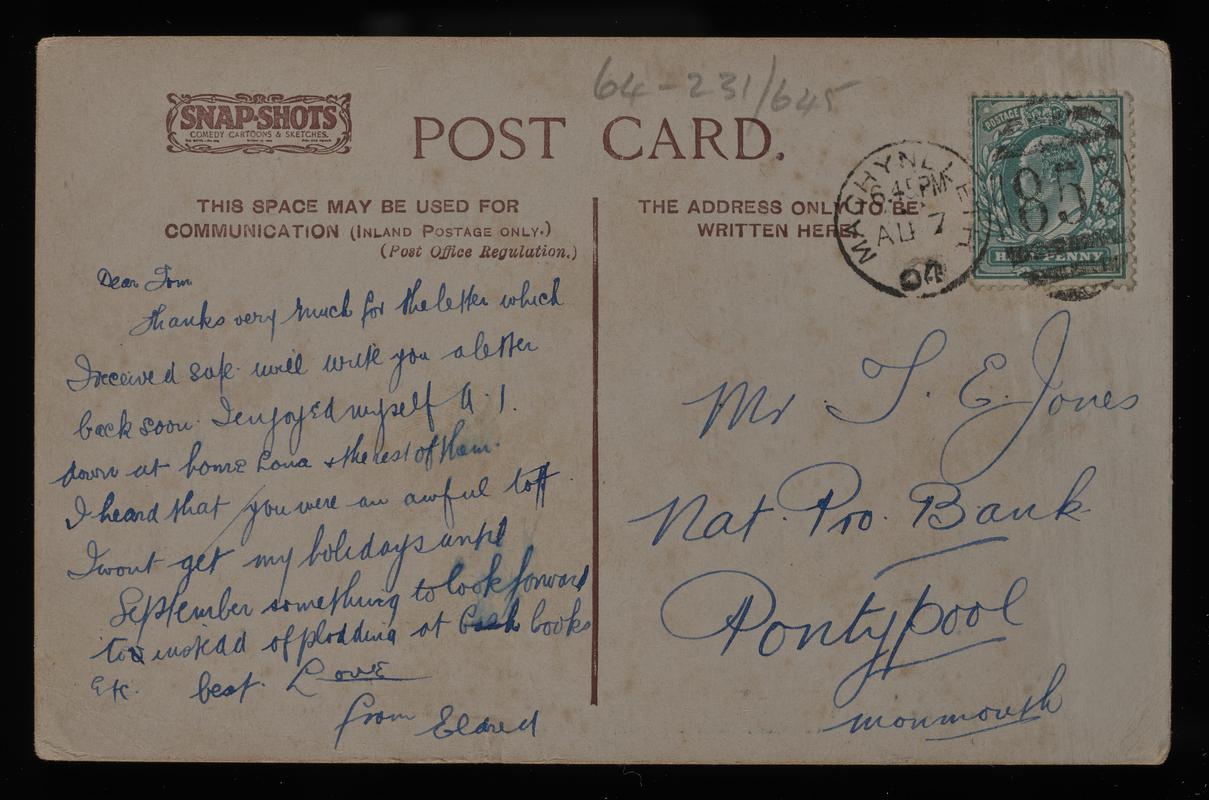 64-231/645
SNAP-SHOTS
COMEDY CARTOONS & SKETCHES.
POST CARD.
THIS SPACE MAY BE USED FOR
COMMUNICATION (INLAND POSTAGE ONLY.)
(Post Office Regulation.)
THE ADDRESS ONLY TO BE
WRITTEN HERE
MACHYNLLETH
6.45PM
AU 7
04
POSTAGE
855
HALFPENNY
Dear Tom
thanks very much for the letter which
I received safe. will write you a letter
back soon. I enjoyed myself A.1.
down at home & the rest of them.
I heard that you were an awful toff
I wont get my holidays until
September something to look forward
too instead of plodding at cash books
Etc. best. Love
from Eldred
Mr T. E. Jones
Nat. Pro. Bank
Pontypool
Monmouth